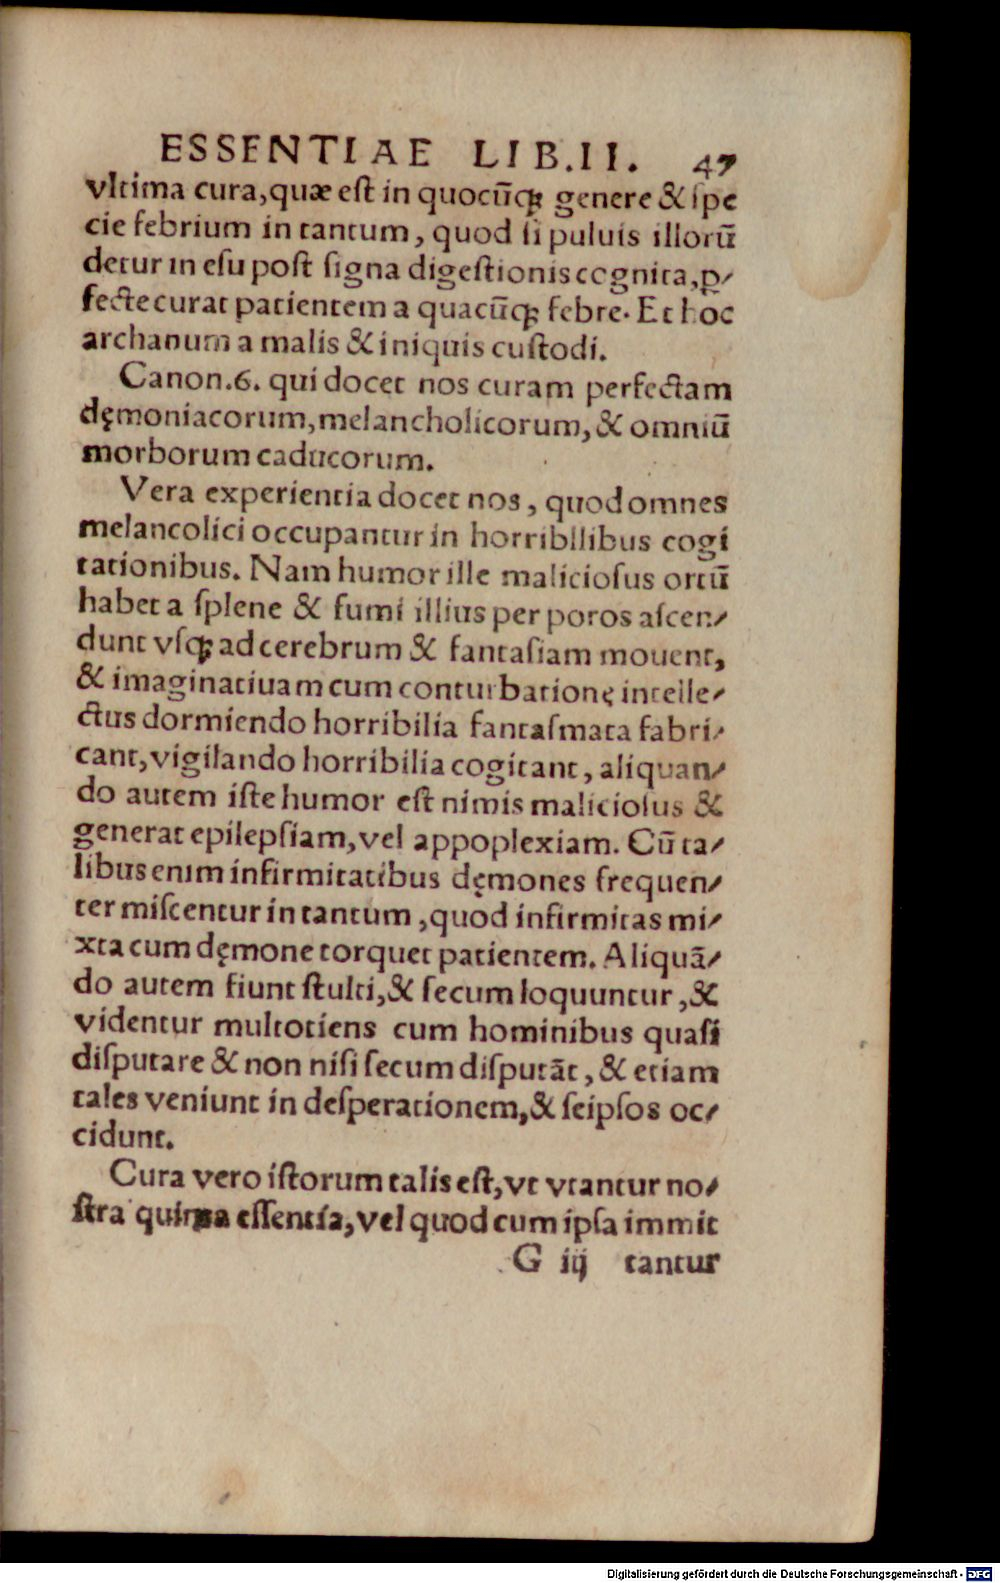 ESSENTIAE LIB.II. 47
vltima cura,quæ est in quocũqꝫ genere & spe
cie febrium in tantum, quod si puluis illorũ
detur in esu post signa digestionis cognita,ꝑ⸗
fecte curat patientem a quacũqꝫ febre. Et hoc
archanum a malis & iniquis custodi.
Canon.6. qui docet nos curam perfectam
dęmoniacorum,melancholicorum,& omniũ
morborum caducorum.
Vera experientia docet nos, quod omnes
melancolici occupantur in horribilibus cogi
tationibus. Nam humor ille maliciosus ortũ
habet a splene & fumi illius per poros ascen⸗
dunt vsqꝫ ad cerebrum & fantasiam mouent,
& imaginatiuam cum conturbationę intelle⸗
ctus dormiendo horribilia fantasmata fabri⸗
cant,vigilando horribilia cogitant, aliquan⸗
do autem iste humor est nimis maliciosus &
generat epilepsiam,vel appoplexiam. Cũ ta⸗
libus enim infirmitatibus dęmones frequen⸗
ter miscentur in tantum ,quod infirmitas mi⸗
xta cum dęmone torquet patientem. Aliquã⸗
do autem fiunt stulti,& secum loquuntur ,&
videntur multotiens cum hominibus quasi
disputare & non nisi secum disputãt, & etiam
tales veniunt in desperationem,& seipsos oc⸗
cidunt.
Cura vero istorum talis est,vt vtantur no⸗
stra quinta essentia,vel quod cum ipsa immit
G iij tantur
Digitalisierung gefördert durch die Deutsche Forschungsgemeinschaft - DFG